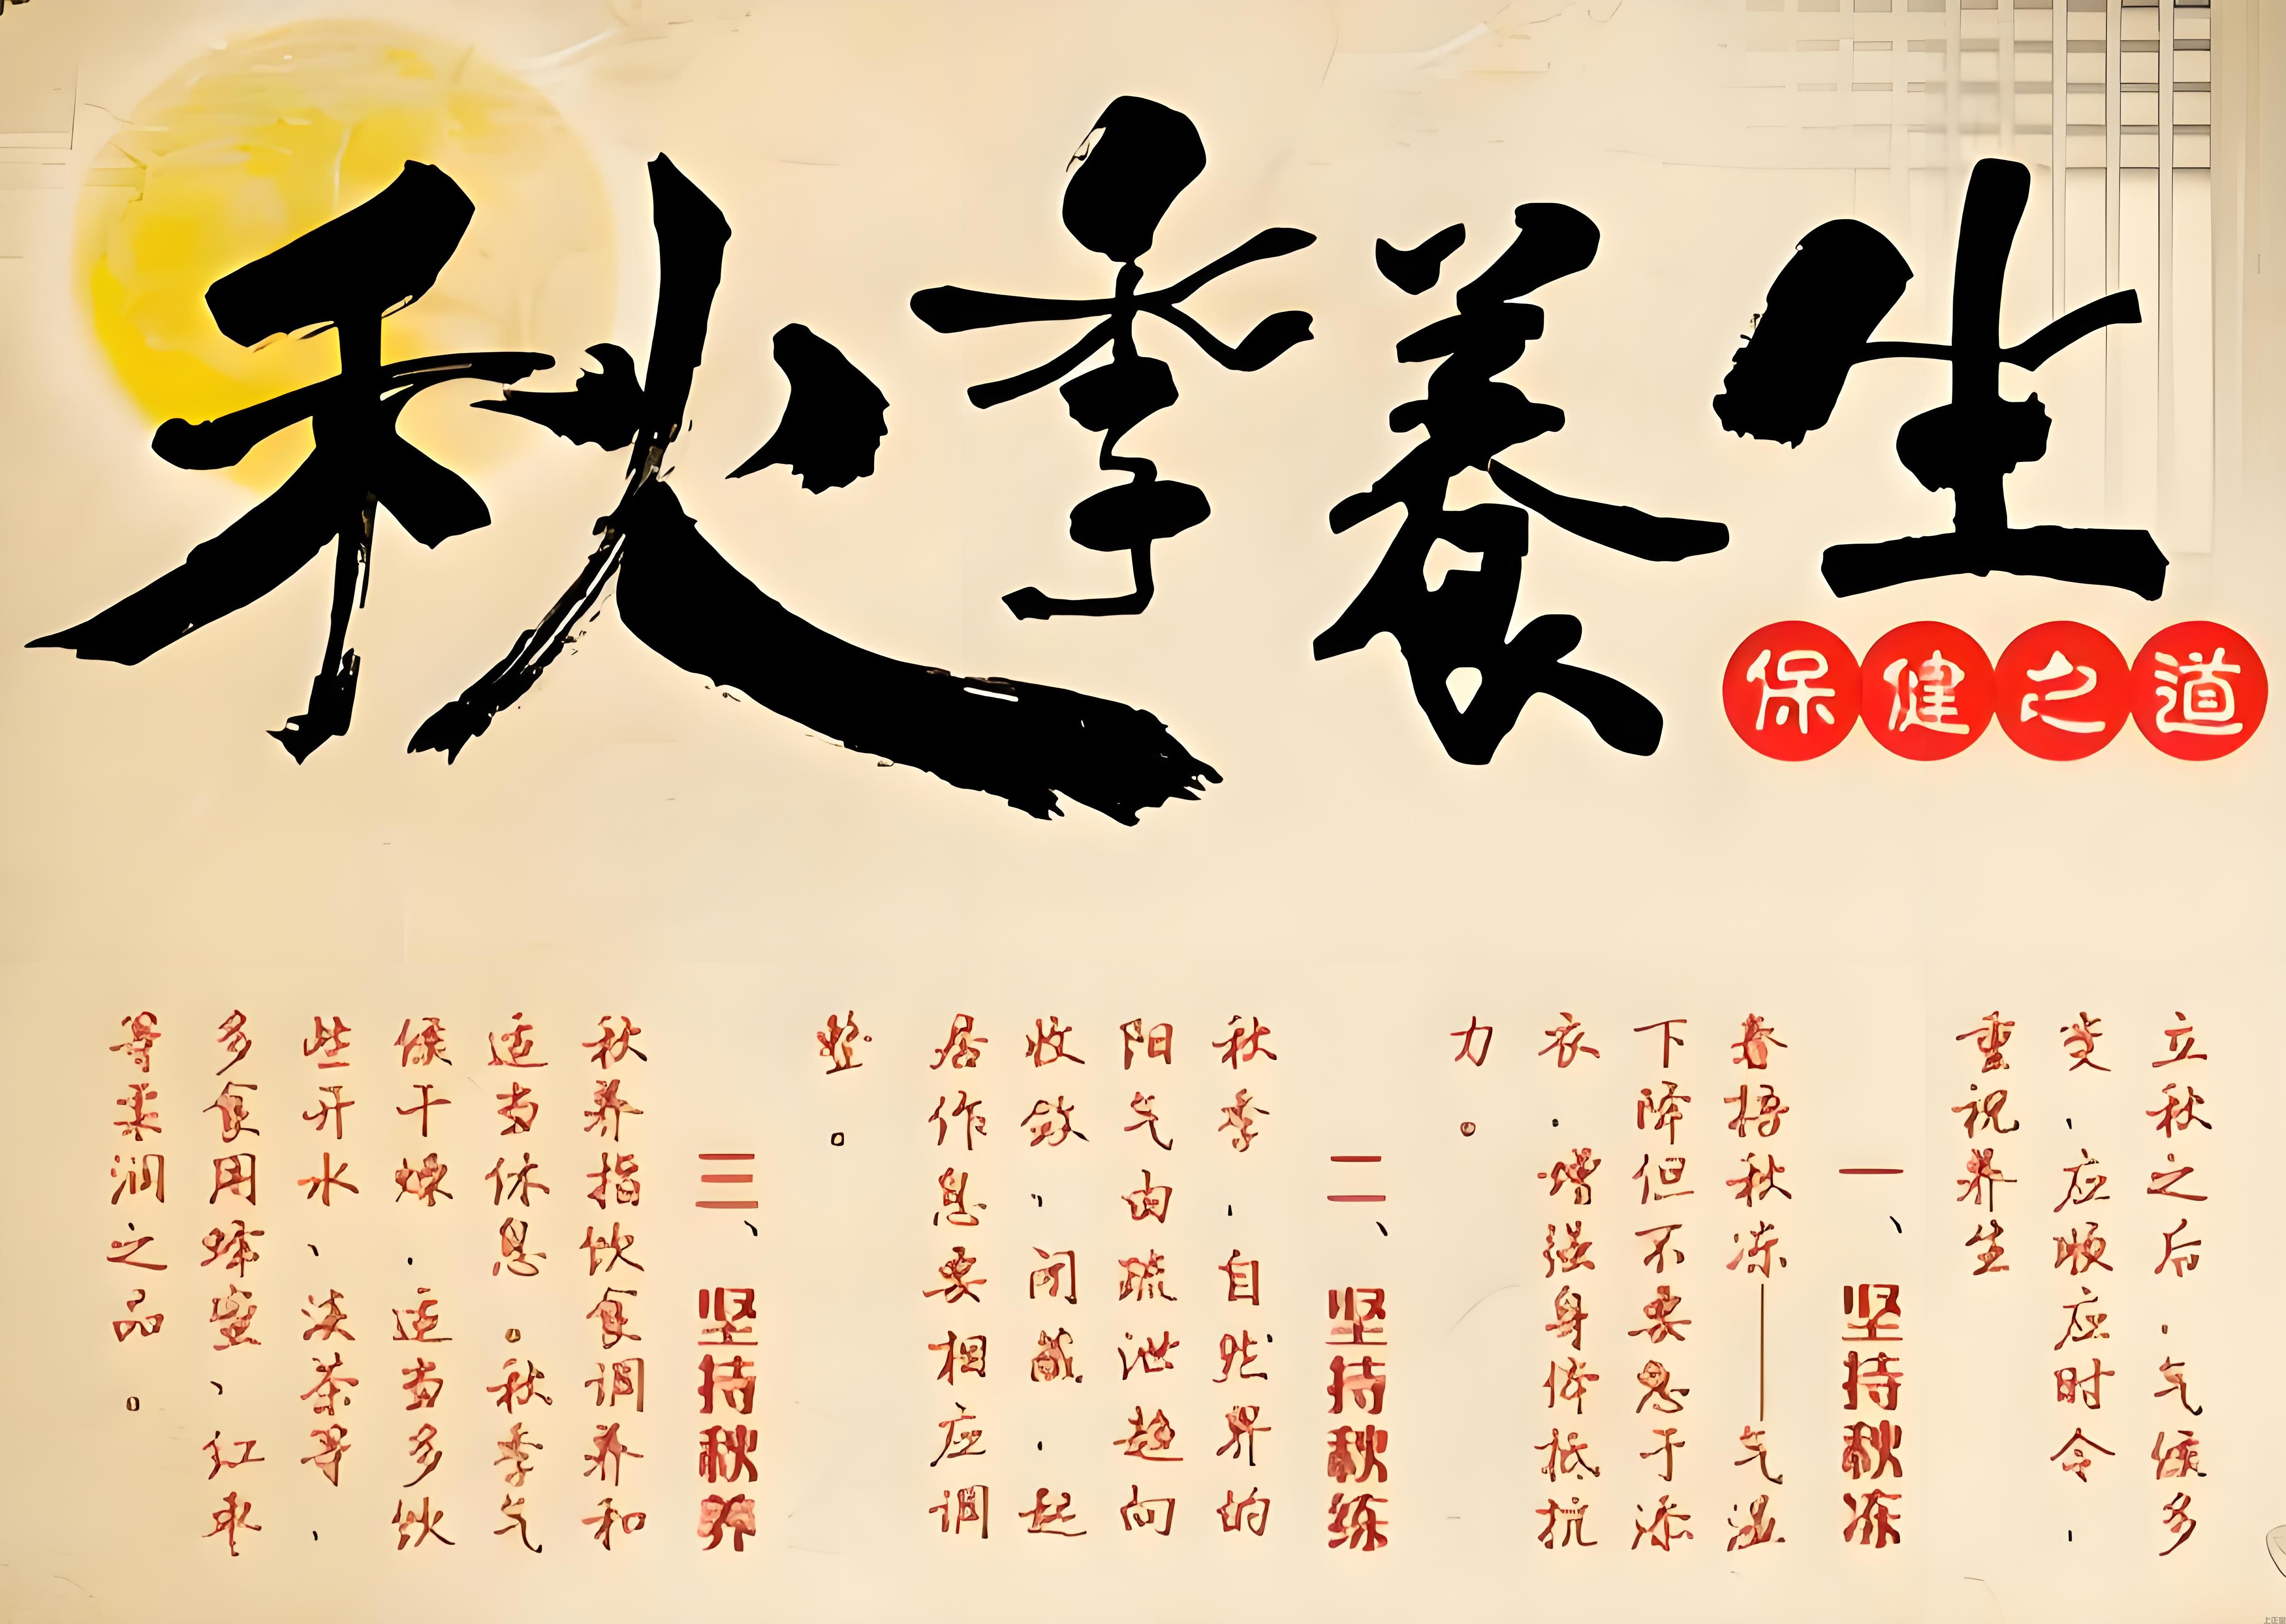 秋季養生
保健之道
立秋之后，气候多
变，应顺应时令，
重视养生
一、坚持秋冻
春捂秋冻——气温
下降但不要急于添
衣，增强身体抵抗
力。
二、坚持秋练
秋季，自然界的
阳气由疏泄趋向
收敛、闭藏，起
居作息要相应调
整。
三、坚持秋养
秋养指饮食调养和
适当休息。秋季气
候干燥，适当多饮
些开水、淡茶等，
多食用蜂蜜、红枣
等柔润之品。